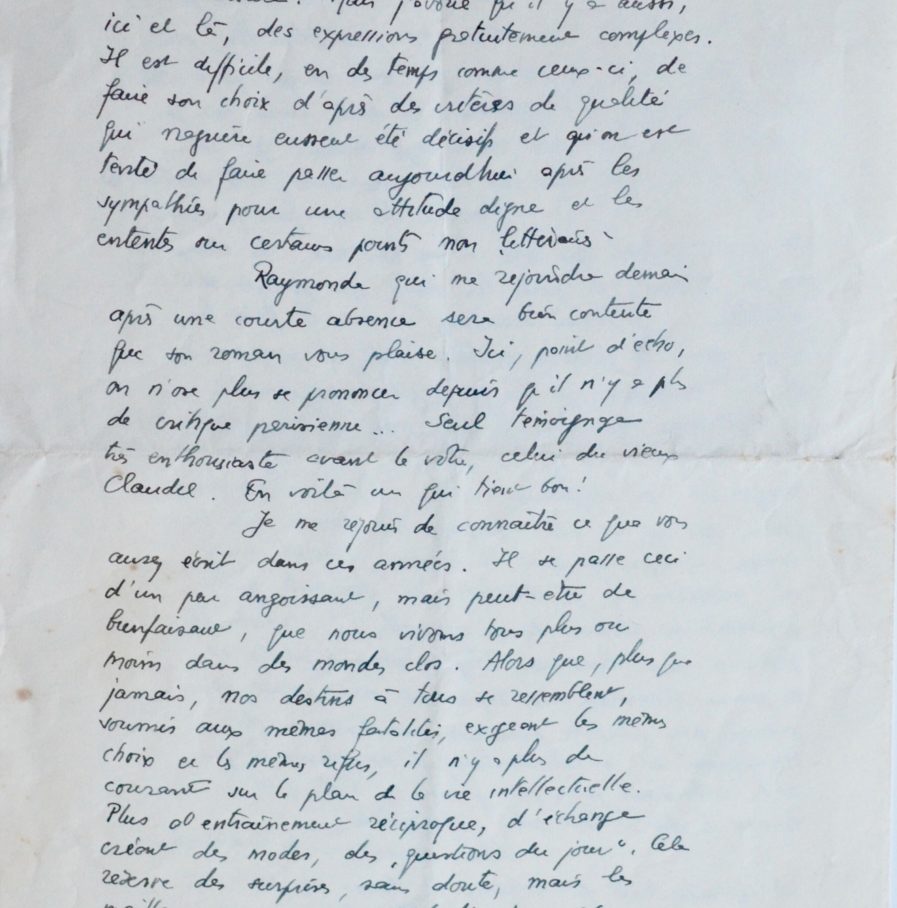 Mais j'avoue qu'il y a aussi,
ici et là, des expressions gratuitement complexes.
Il est difficile, en des temps comme ceux-ci, de
faire son choix d'après des critères de qualité
qui naguère eussent été décisifs et qu'on est
tenté de faire passer aujourdhui après les
sympathies pour une attitude digne et les
ententes sur certains points non littéraires.
Raymonde qui me rejoindra demain
après une courte absence sera bien contente
que son roman vous plaise. Ici, point d'écho,
on n'ose plus se prononcer depuis qu'il n'y a plus
de critique parisienne... Seul témoignage
très enthousiaste avant le vôtre, celui du vieux
Claudel. En voilà un qui tient bon!
Je me réjouis de connaître ce que vous
aurez écrit dans ces années. Il se passe ceci
d'un peu angoissant, mais peut-être de
bienfaisant, que nous vivons tous plus ou
moins dans des mondes clos. Alors que, plus que
jamais, nos destins à tous se ressemblent,
soumis aux mêmes fatalités, exigeant les mêmes
choix et les mêmes refus, il n'y a plus de
courant sur le plan de la vie intellectuelle.
Plus d'entraînement réciproque, d'échange
créant des modes, des "questions du jour". Cela
réserve des surprises, sans doute, mais les